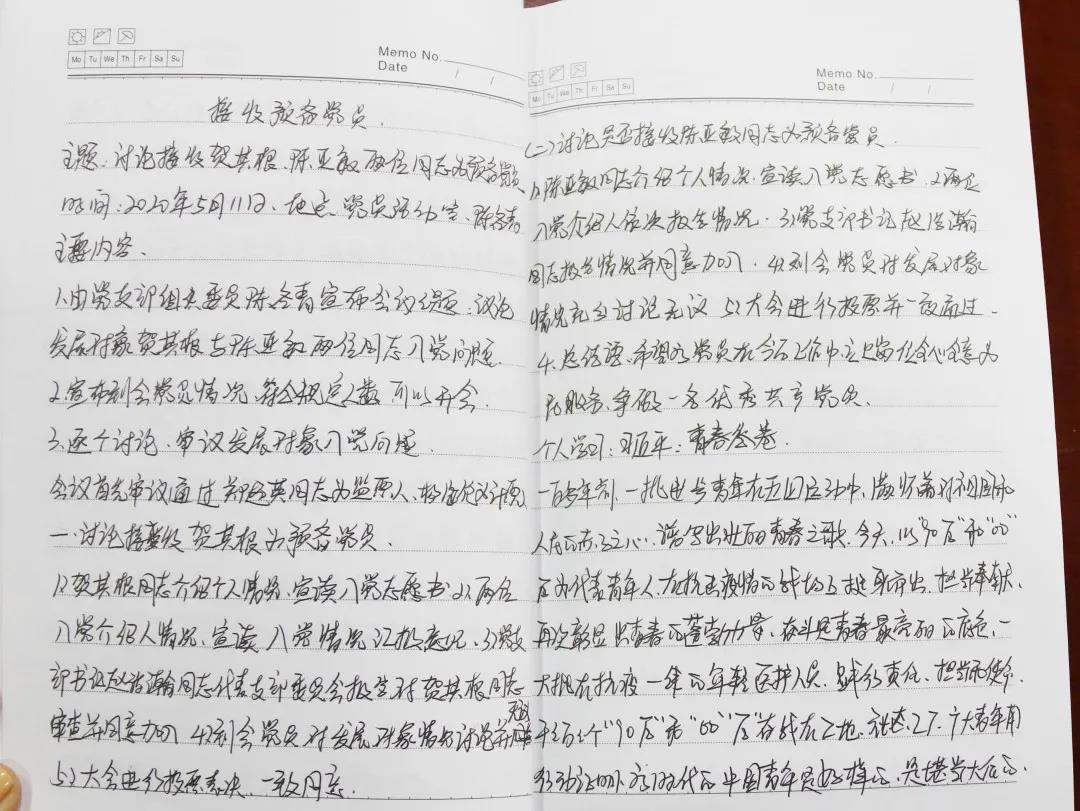 Mo Tu We Th Fr Sa Su
Memo No.
Date / /
接收预备党员.
主题:讨论接收贺其根、陈亚敏两位同志为预备党员
时间:2020年5月11日、地点:党员活动室、陈冬青
主要内容、
1.由党支部组织委员陈冬青宣布会议议题:议论
发展对象贺其根与陈亚敏两位同志入党问题.
2.宣布到会党员情况、符合规定人数 可以开会.
3.逐个讨论、审议发展对象入党问题
会议首先审议通过 同志为监票人、
一.讨论接收贺其根为预备党员.
1)贺其根同志介绍个人情况、宣读入党志愿书 2)两位
入党介绍人情况、宣读入党情况 意见、3)党支
部书记赵浩瀚同志代表支部委员会报告对贺其根同志
审查并同意加入 4)到会党员对发展对象情况讨论并
5)大会进行投票表决、一致同意.
Mo Tu We Th Fr Sa Su
Memo No.
Date / /
(二)讨论是否接收陈亚敏同志为预备党员.
1)陈亚敏同志介绍个人情况、宣读入党志愿书、2)两位
入党介绍人依次报告情况.3)党支部书记赵浩瀚
同志报告情况并同意加入、4)到会党员对发展对象
情况充分讨论无议 5)大会进行投票并一致通过.
4.总结语:希望为党员在今后工作中立足岗位全心全意为
民服务、争做一名优秀共产党员.
个人学习:习近平:青春答卷.
一百多年前、一批进步青年在五四运动中、满怀着对祖国和
人民的赤子之心、谱写出壮丽的青春之歌、今天、以“90后”和“00”
后为代表青年人、在抗击疫情的战场上挺身而出、担当奉献、
再次彰显出青春的蓬勃力量、奋斗是青春最亮丽的底色、一
大批在抗疫一线的年轻医护人员、践行责任、担当和使命.
千百个“90后”和“00”后在战在工地、 广大青年用
行动证明、新时代的中国青年是好样的、是堪当大任的.